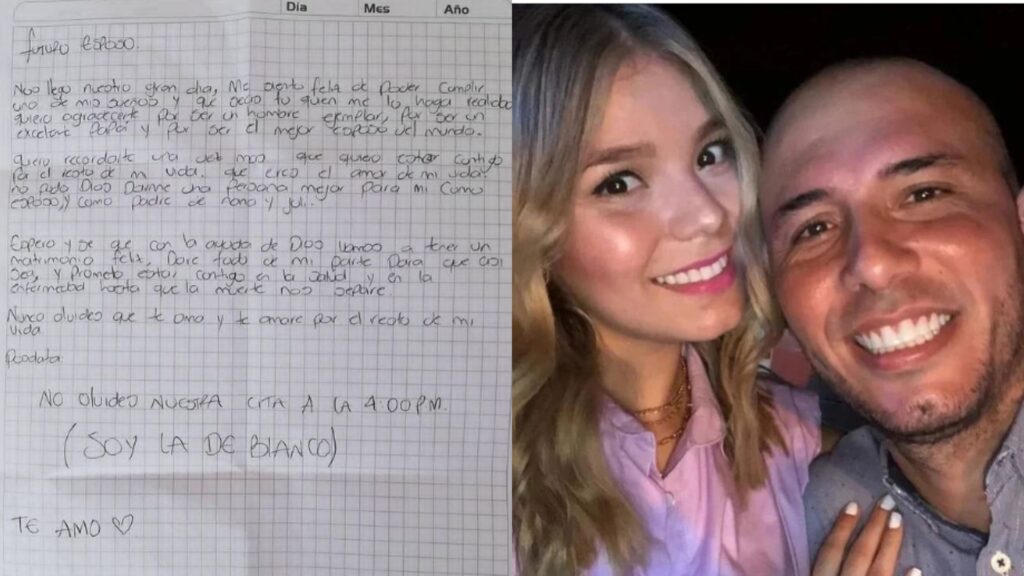 Día Mes Año
futuro esposo.
Nos llego nuestro gran dia, Me siento feliz de Poder Cumplir
uno de mis sueños, y que seas tu quien me lo haga realidad
quiero agradecerte por ser un hombre ejemplar, Por ser un
excelente Papá y Por ser el mejor esposo del mundo.
quiero recordarte una vez mas que quiero estar contigo
Por el resto de mi vida. que eres el amor de mi vida,
no pudo Dios Darme una Persona mejor para mi como
esposo, y como padre de nono y juli.
Espero y se que con la ayuda de Dios vamos a tener un
matrimonio feliz, Dare todo de mi parte Para que asi
sea, y Prometo estar contigo en la salud y en la
enfermedad hasta que la muerte nos separe
Nunca olvides que te amo y te amare por el resto de mi
vida
Posdata:
NO OlvideS NUESTRA CITA A LA 4:00 P.M.
(SOY LA DE BLANCO)
TE AMO ♡